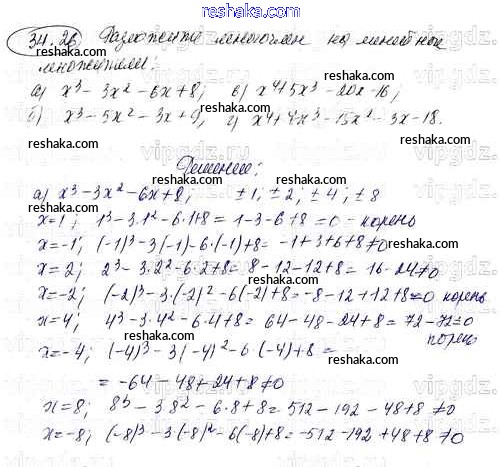 reshaka.com
34.26 Разложите многочлен на линейные
множители:
а) x³ - 3x² - 6x + 8; в) x⁴ + 5x³ - 20x - 16;
б) x³ - 5x² - 3x + 9; г) x⁴ + 4x³ - 15x² - 3x - 18.
Решение:
а) x³ - 3x² - 6x + 8; ± 1; ± 2; ± 4; ± 8
x = 1; 1³ - 3·1² - 6·1 + 8 = 1 - 3 - 6 + 8 = 0 - корень
x = -1; (-1)³ - 3(-1) - 6·(-1) + 8 = -1 + 3 + 6 + 8 ≠ 0
x = 2; 2³ - 3·2² - 6·2 + 8 = 8 - 12 - 12 + 8 = 16 - 24 ≠ 0
x = -2; (-2)³ - 3·(-2)² - 6(-2) + 8 = -8 - 12 + 12 + 8 = 0 корень
x = 4; 4³ - 3·4² - 6·4 + 8 = 64 - 48 - 24 + 8 = 72 - 72 = 0
корень
x = -4; (-4)³ - 3(-4)² - 6·(-4) + 8 =
= -64 - 48 + 24 + 8 ≠ 0
x = 8; 8³ - 3·8² - 6·8 + 8 = 512 - 192 - 48 + 8 ≠ 0
x = -8; (-8)³ - 3(-8)² - 6(-8) + 8 = -512 - 192 + 48 + 8 ≠ 0